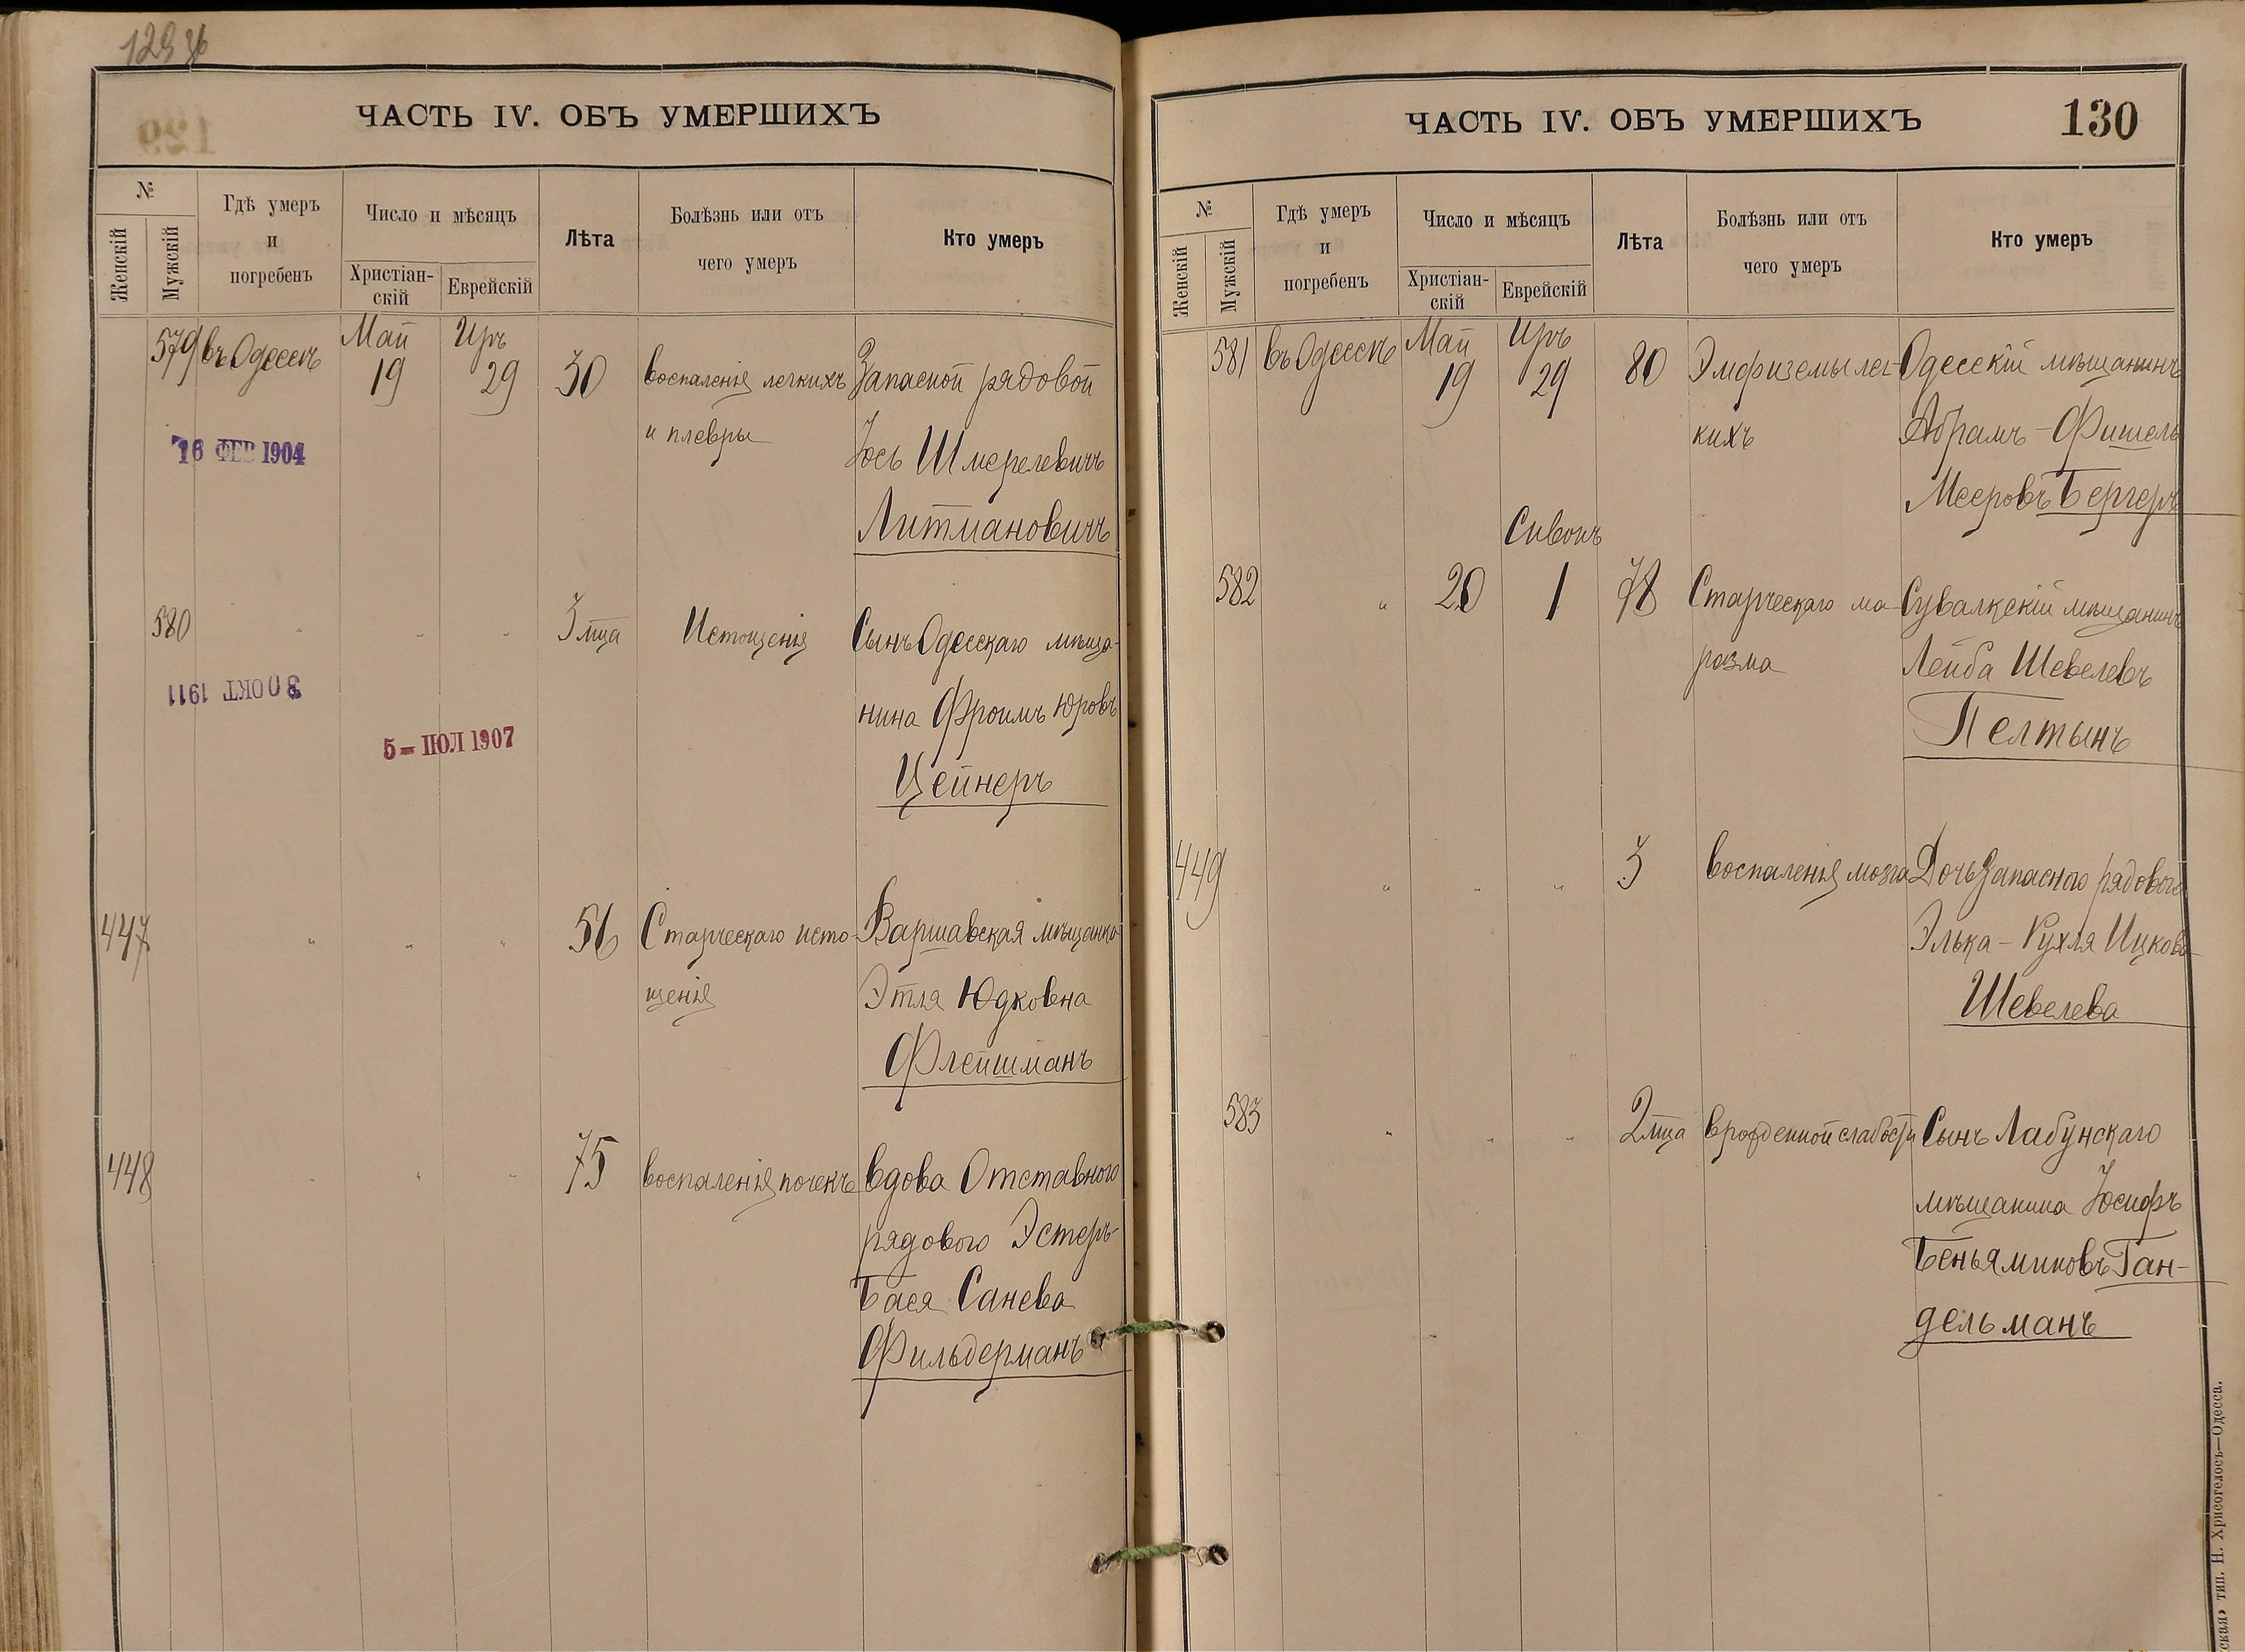 129 об
ЧАСТЬ IV. ОБЪ УМЕРШИХЪ
№
Женскій
Мужскій
Гдѣ умеръ
и
погребенъ
Число и мѣсяцъ
Христіан-
скій
Еврейскій
Лѣта
Болѣзнь или отъ
чего умеръ
Кто умеръ
Май Иръ
579 въ Одессѣ 19 29 30 воспаленія легкихъ Запасной рядовой
и плевры Іось Шмерелевичъ
16 ФЕВ 1904
Литмановичъ
580 " " " 3 мца Истощенія Сынъ Одесскаго мѣща-
30 ОКТ 1911
нина Фроимъ Юровъ
5 - ІЮЛ 1907
Цейнеръ
447 " " " 56 Старческаго исто- Варшавская мѣщанка
щенія Этля Юдковна
Флейшманъ
448 " " " 75 воспаленія почекъ вдова Отставного
рядового Эстеръ-
Бася Санева
Фильдерманъ
ЧАСТЬ IV. ОБЪ УМЕРШИХЪ
130
№
Женскій
Мужскій
Гдѣ умеръ
и
погребенъ
Число и мѣсяцъ
Христіан-
скій
Еврейскій
Лѣта
Болѣзнь или отъ
чего умеръ
Кто умеръ
Май Иръ
581 въ Одессѣ 19 29 80 Эмфиземы лег- Одесскій мѣщанинъ
кихъ Абрамъ-Фишель
Мееровъ Бергеръ
Сивонъ
582 " 20 1 78 Старческаго ма- Сувалкскій мѣщанинъ
разма Лейба Шевелевъ
Пелтынъ
449 " " " 3 воспаленія мозга Дочь Запасного рядового
Элька-Рухля Ицкова
Шевелева
583 " " " 2 мца врожденной слабости Сынъ Лабунскаго
мѣщанина Іосифъ
Беньяминовъ Ган-
дельманъ
тип. Н. Хрисогелосъ—Одесса.